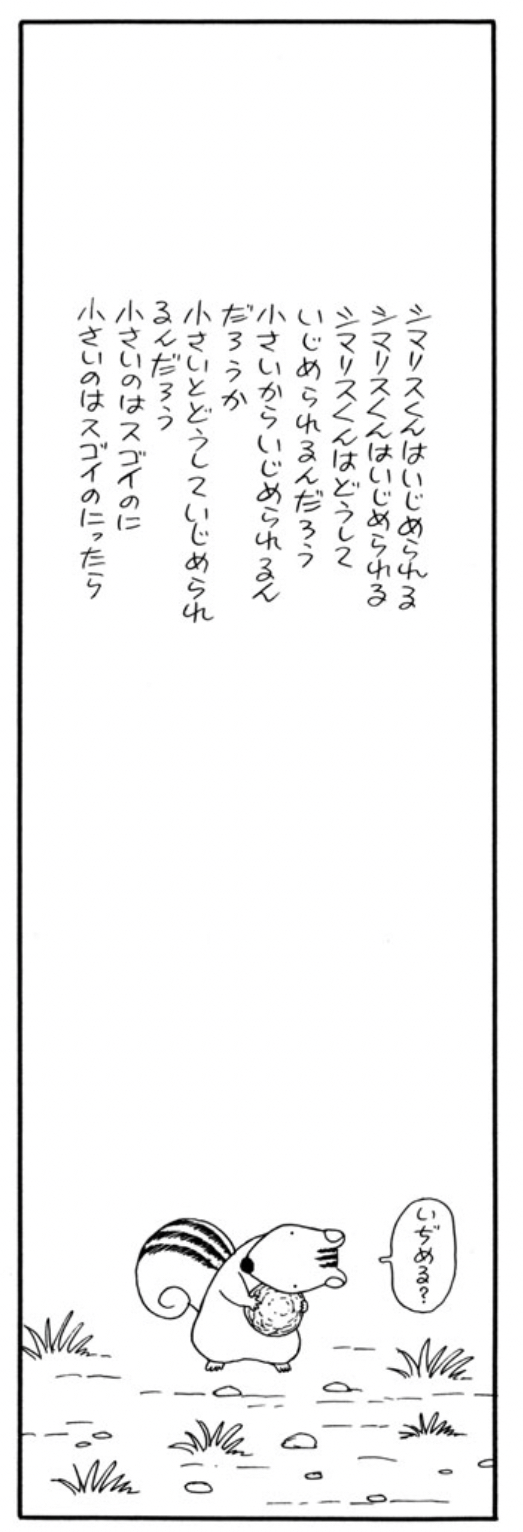 シマリスくんはいじめられる
シマリスくんはいじめられる
シマリスくんはどうして
いじめられるんだろう
小さいからいじめられるん
だろうか
小さいとどうしていじめられ
るんだろう
小さいのはスゴイのに
小さいのはスゴイのにったら
いぢめる?